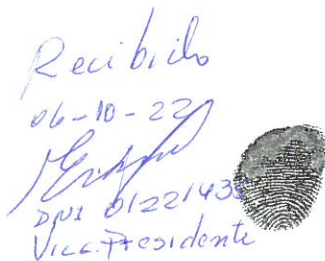 Recibido
06-10-22
DNI 0122143
Vice-Presidente